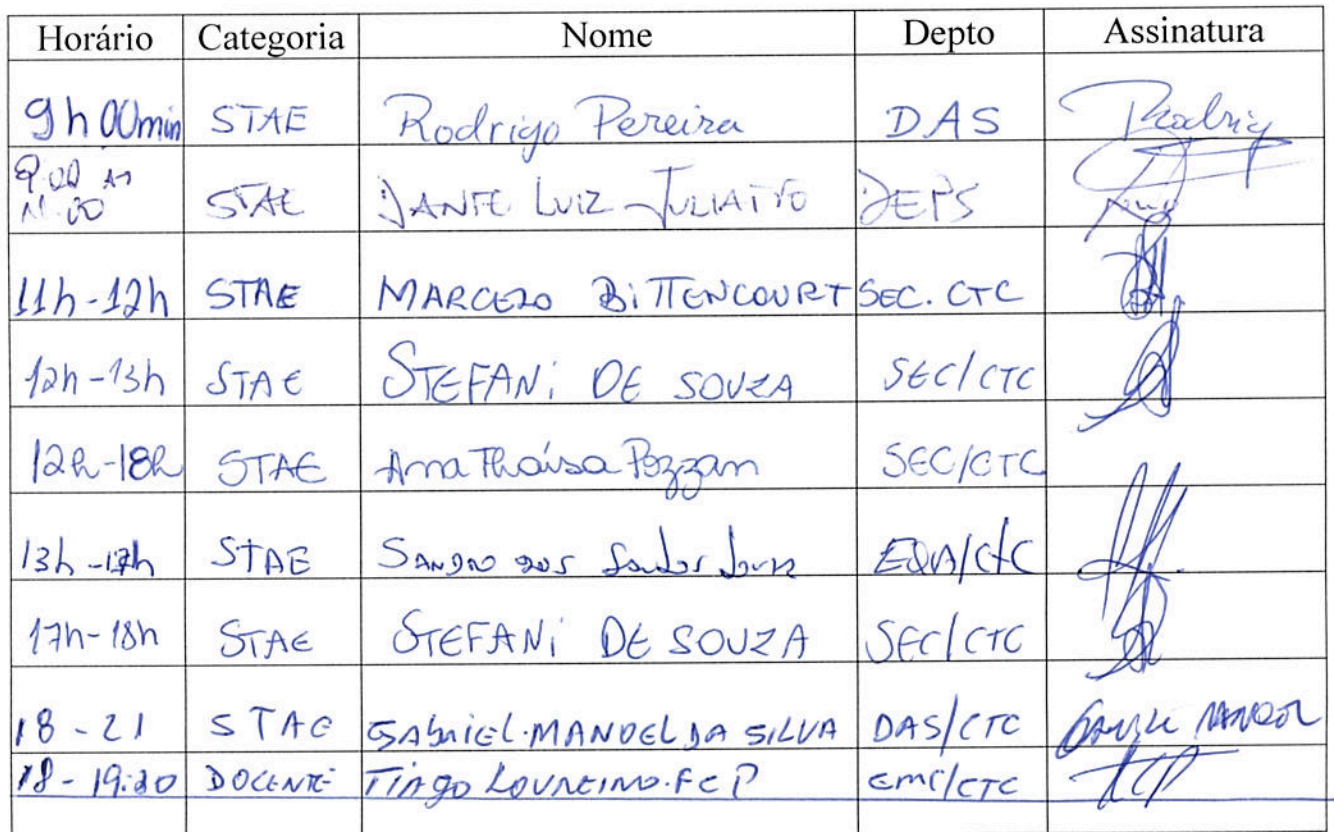 Horário Categoria Nome Depto Assinatura
9h00min STAE Rodrigo Pereira DAS Rodrig
9:00 às STAE DANTE LUIZ JULIATTO DEPS
11:00
11h-12h STAE MARCELO BITTENCOURT SEC. CTC
12h-13h STAE STEFANi DE SOUZA SEC/CTC
12h-18h STAE Ana Thaísa Pozzan SEC/CTC
13h-17h STAE SANDRO dos Santos EQA/CTC
17h-18h STAE STEFANi DE SOUZA SEC/CTC
18-21 STAE GABRIEL MANOEL DA SILVA DAS/CTC GABRIEL MANOEL
18-19:30 DOCENTE TIAGO LOUREIRO.FCP EMC/CTC TCP